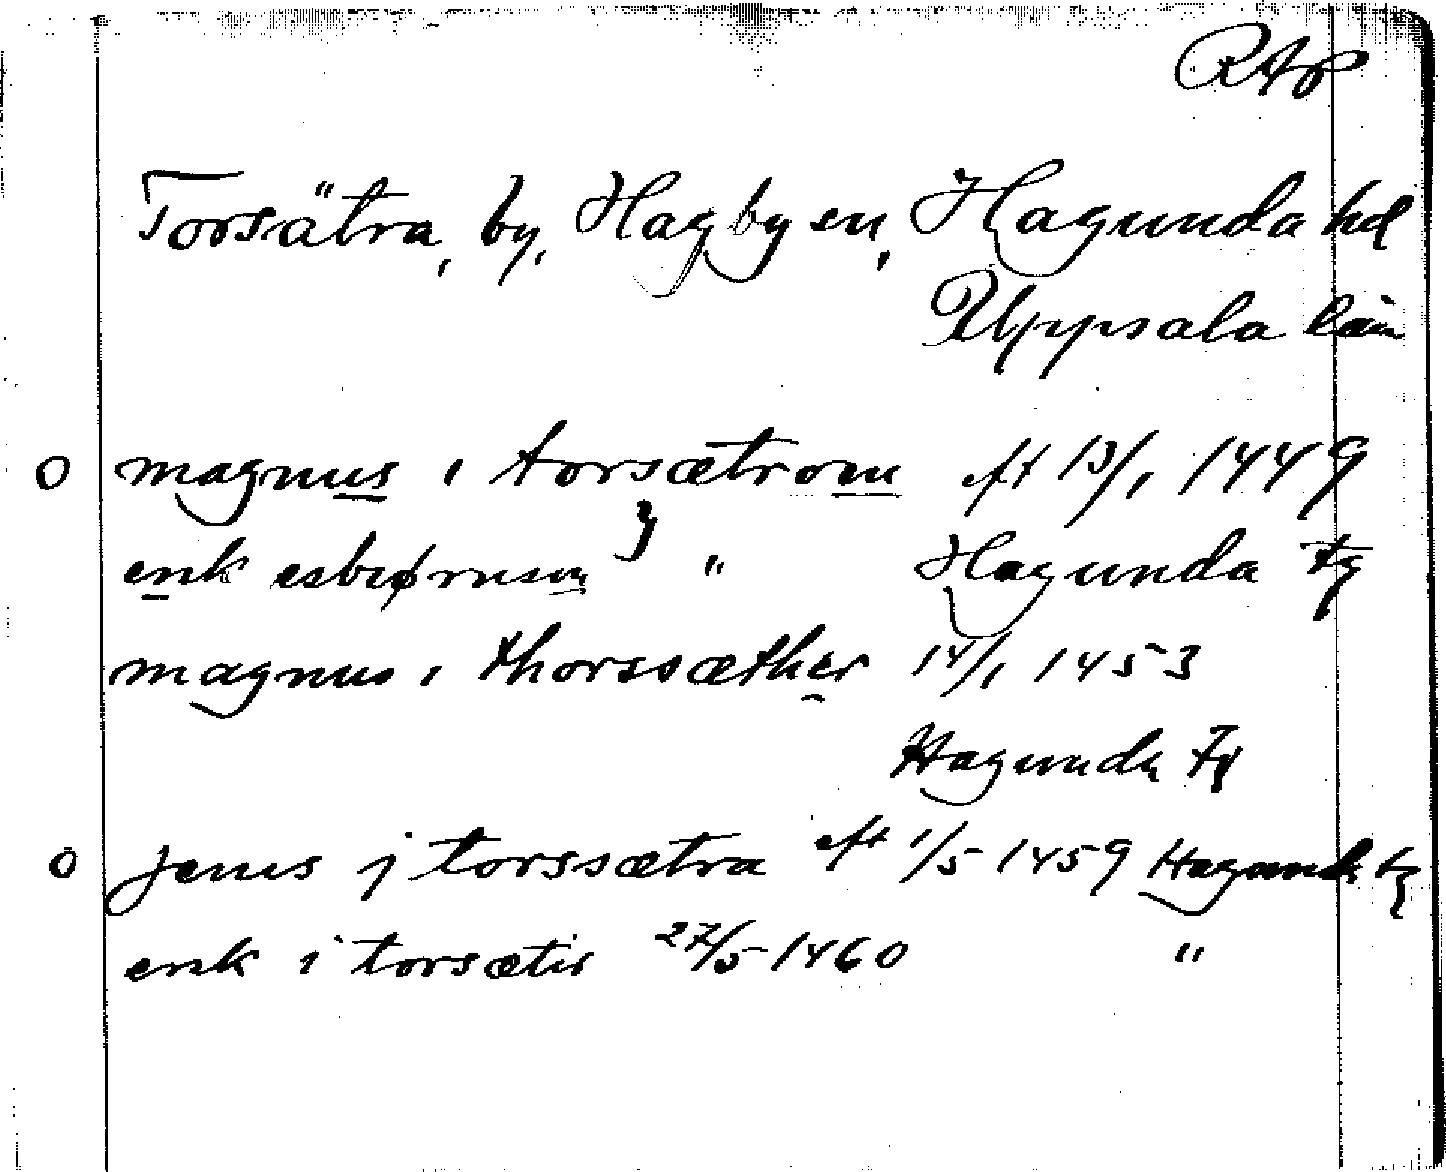 RAp
Torsätra, by, Hagby sn, Hagunda hd
Uppsala län
O magnus i torsætrom eft 13/1 1449
enk esbiørnson } " Hagunda tg
magnus i thorssæther 14/1 1453
Hagunda tg
O jenis j torssætra eft 1/5 1459 Hagunda tg
enk i torsætir 27/5 1460 "